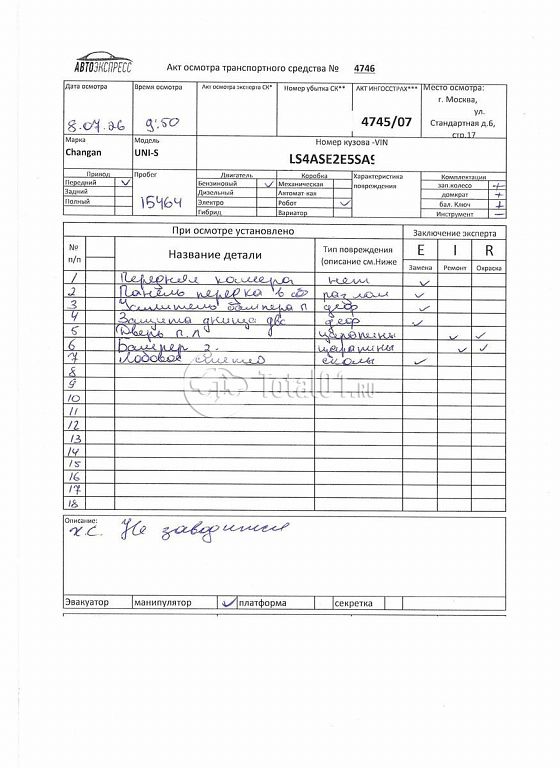 АВТОЭКСПРЕСС
Акт осмотра транспортного средства № 4746
Дата осмотра Время осмотра Акт осмотра эксперта СК* Номер убытка СК** АКТ ИНГОССТРАХ*** Место осмотра:
8.07.26 9:50 4745/07 г. Москва, ул. Стандартная д.6, стр.17
Марка Модель Номер кузова -VIN
Changan UNI-S LS4ASE2E5SA
Привод Пробег Двигатель Коробка Характеристика повреждения Комплектация
Передний Бензиновый Механическая зап.колесо +
Задний Дизельный Автомат-кая домкрат +
Полный 15464 Электро Робот бал. Ключ +
Гибрид Вариатор Инструмент –
При осмотре установлено Заключение эксперта
№ п/п Название детали Тип повреждения (описание см.Ниже E I R
Замена Ремонт Окраска
1 Передняя камера нет
2 Панель передка в сб разлом
3 Усилитель бампера п деф
4 Защита днища двс деф
5 Дверь п.л царапины
6 Бампер з. царапины
7 Лобовое стекло сколы
8
9
10
11
12
13
14
15
16
17
18
Total01.ru
Описание:
х.с. Не заводится
Эвакуатор манипулятор платформа секретка